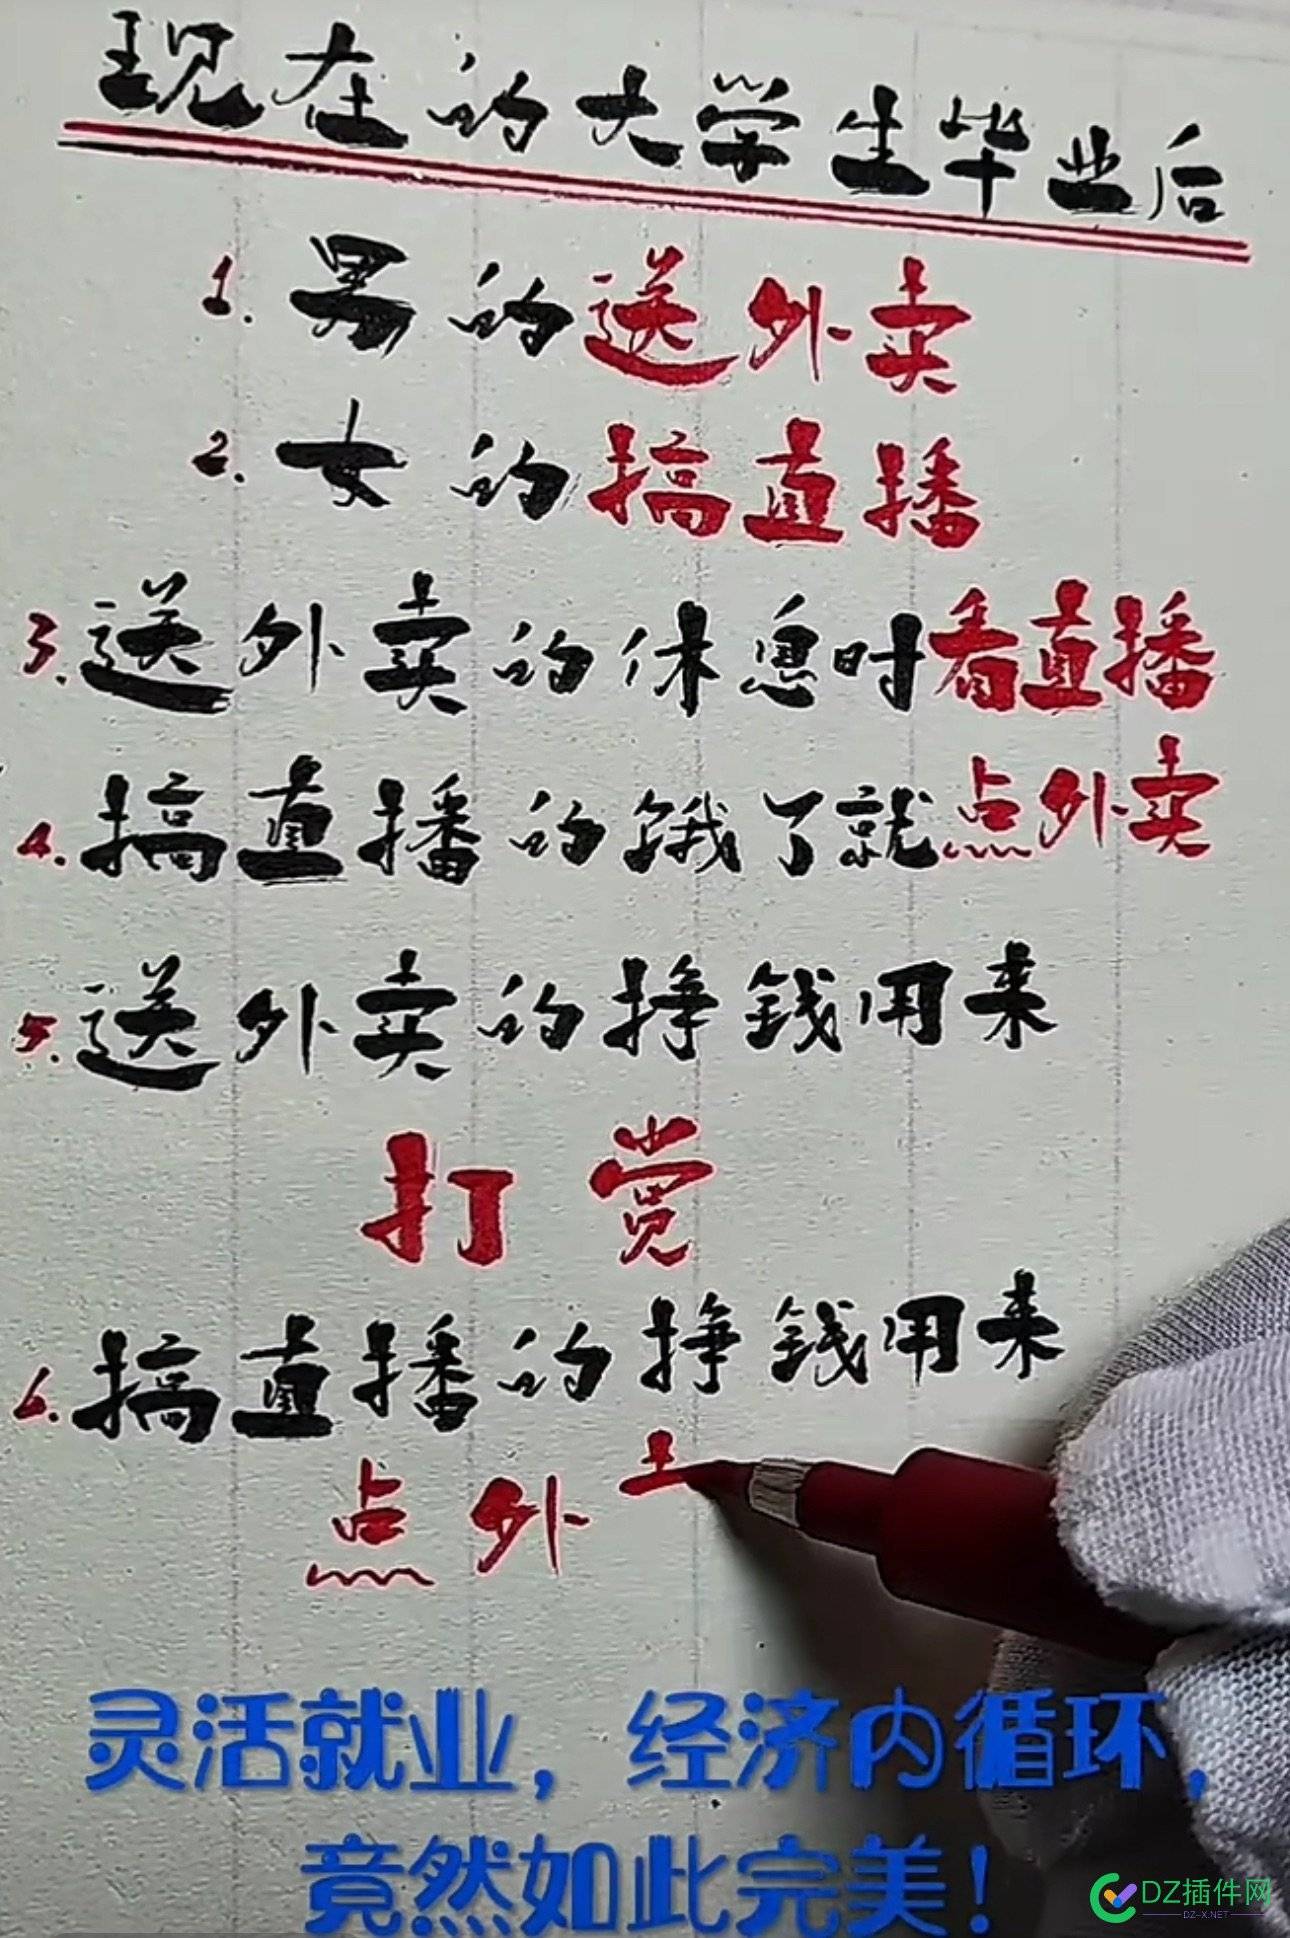 现在的大学生毕业后
1. 男的送外卖
2. 女的搞直播
3. 送外卖的休息时看直播
4. 搞直播的饿了就点外卖
5. 送外卖的挣钱用来
打赏
6. 搞直播的挣钱用来
点外
灵活就业，经济内循环，
竟然如此完美！
DZ插件网
DZ-X.NET